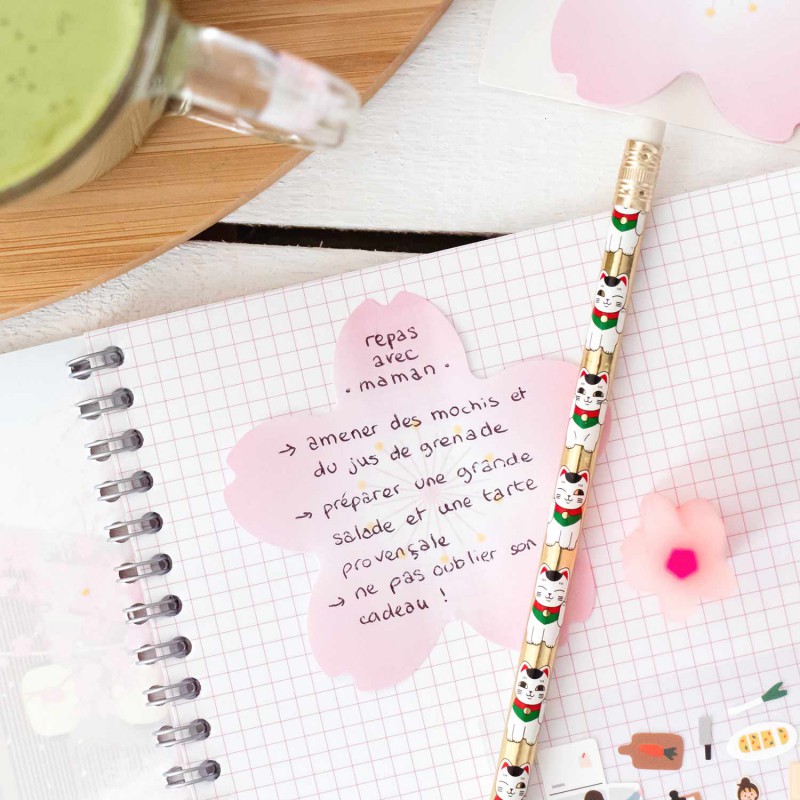 repas
avec
• maman •
→ amener des mochis et
du jus de grenade
→ préparer une grande
salade et une tarte
provençale
→ ne pas oublier son
cadeau !